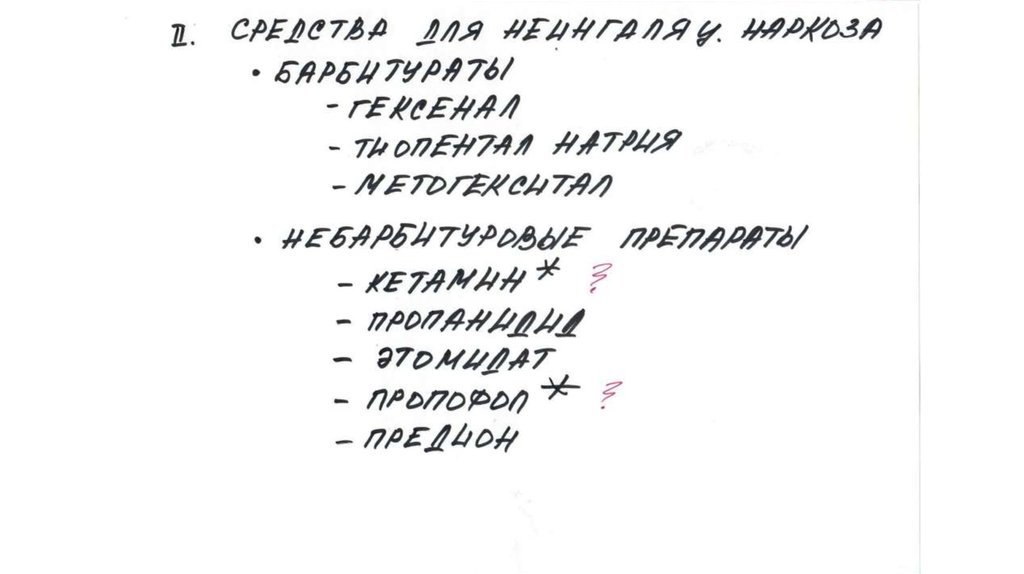 II. СРЕДСТВА ДЛЯ НЕИНГАЛЯЦ. НАРКОЗА
• БАРБИТУРАТЫ
- ГЕКСЕНАЛ
- ТИОПЕНТАЛ НАТРИЯ
- МЕТОГЕКСИТАЛ
• НЕБАРБИТУРОВЫЕ ПРЕПАРАТЫ
- КЕТАМИН * ?
- ПРОПАНИДИД
- ЭТОМИДАТ
- ПРОПОФОЛ * ?
- ПРЕДИОН